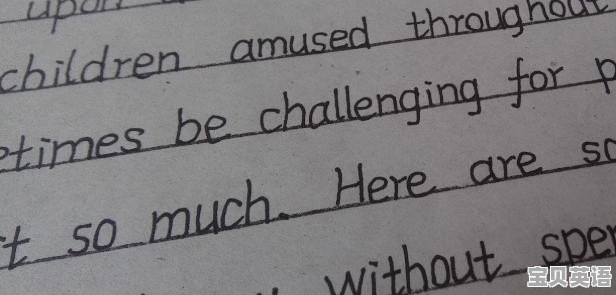 upon
children amused throughout
etimes be challenging for p
t so much. Here are so
without spen
宝贝英语